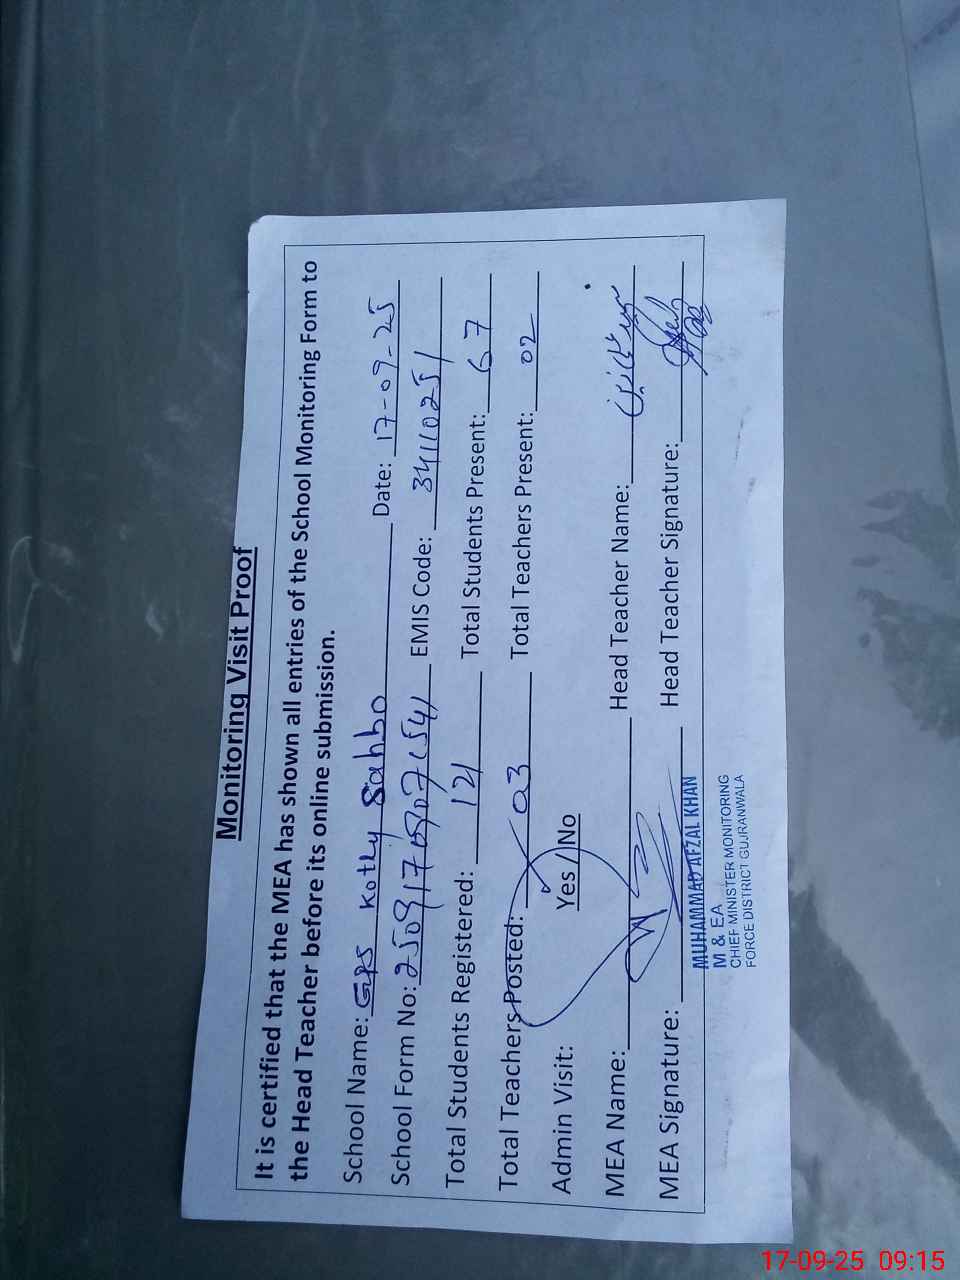 Monitoring Visit Proof
It is certified that the MEA has shown all entries of the School Monitoring Form to
the Head Teacher before its online submission.
School Name: GPS Kotly Sahbo Date: 17-09-25
School Form No: EMIS Code: 34110251
Total Students Registered: 121 Total Students Present: 67
Total Teachers Posted: 03 Total Teachers Present: 02
Admin Visit: Yes / No
MEA Name: Head Teacher Name:
MEA Signature: Head Teacher Signature:
MUHAMMAD AFZAL KHAN
M & EA
CHIEF MINISTER MONITORING
FORCE DISTRICT GUJRANWALA
17-09-25 09:15